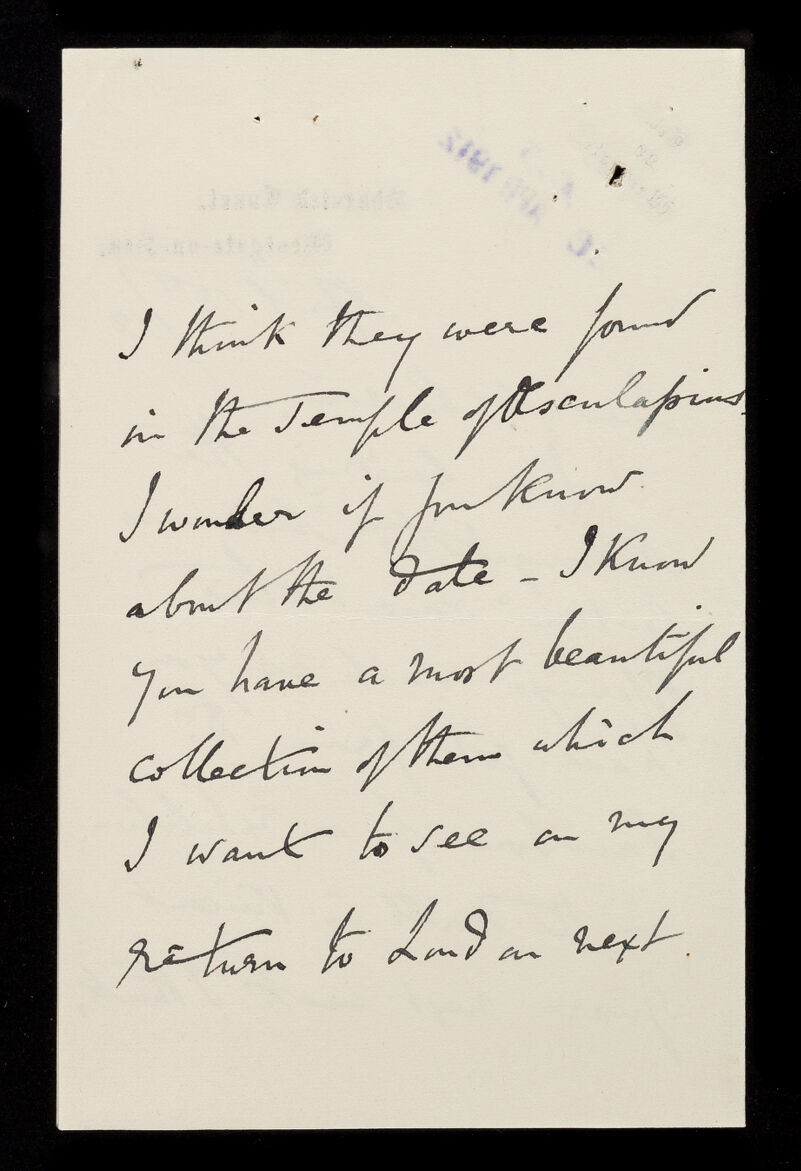 I think they were found
in the Temple of Æsculapius.
I wonder if you know
about the date - I know
you have a most beautiful
collection of them which
I want to see on my
return to London next